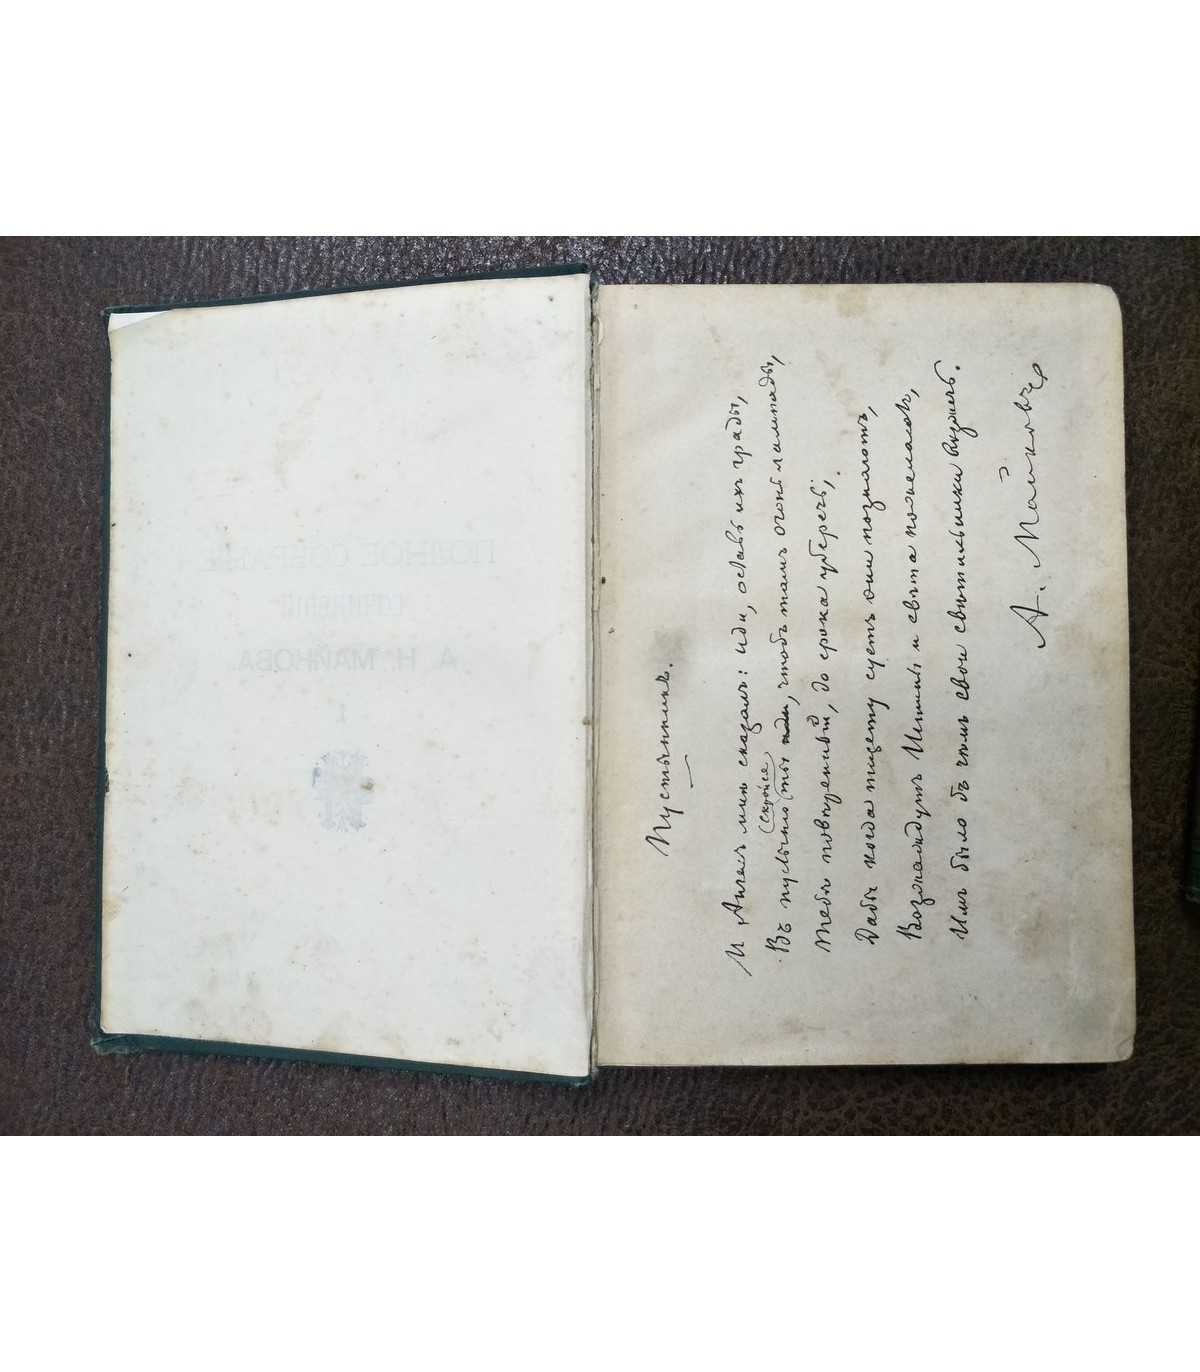 ПОЛНОЕ СОБРАНІЕ
СОЧИНЕНІЙ
А. Н. МАЙКОВА.
Пустынникъ.
И Ангелъ мнѣ сказалъ: иди, оставь ихъ грады,
Въ пустыню скройся ты, чтобъ тамъ огонь лампады,
Тебѣ повѣренный, до срока уберечь,
Дабы когда тщету суетъ они познаютъ,
Возжаждутъ Истины и свѣта пожелаютъ,
Имъ было бъ чѣмъ свои свѣтильники возжечь.
А. Майковъ